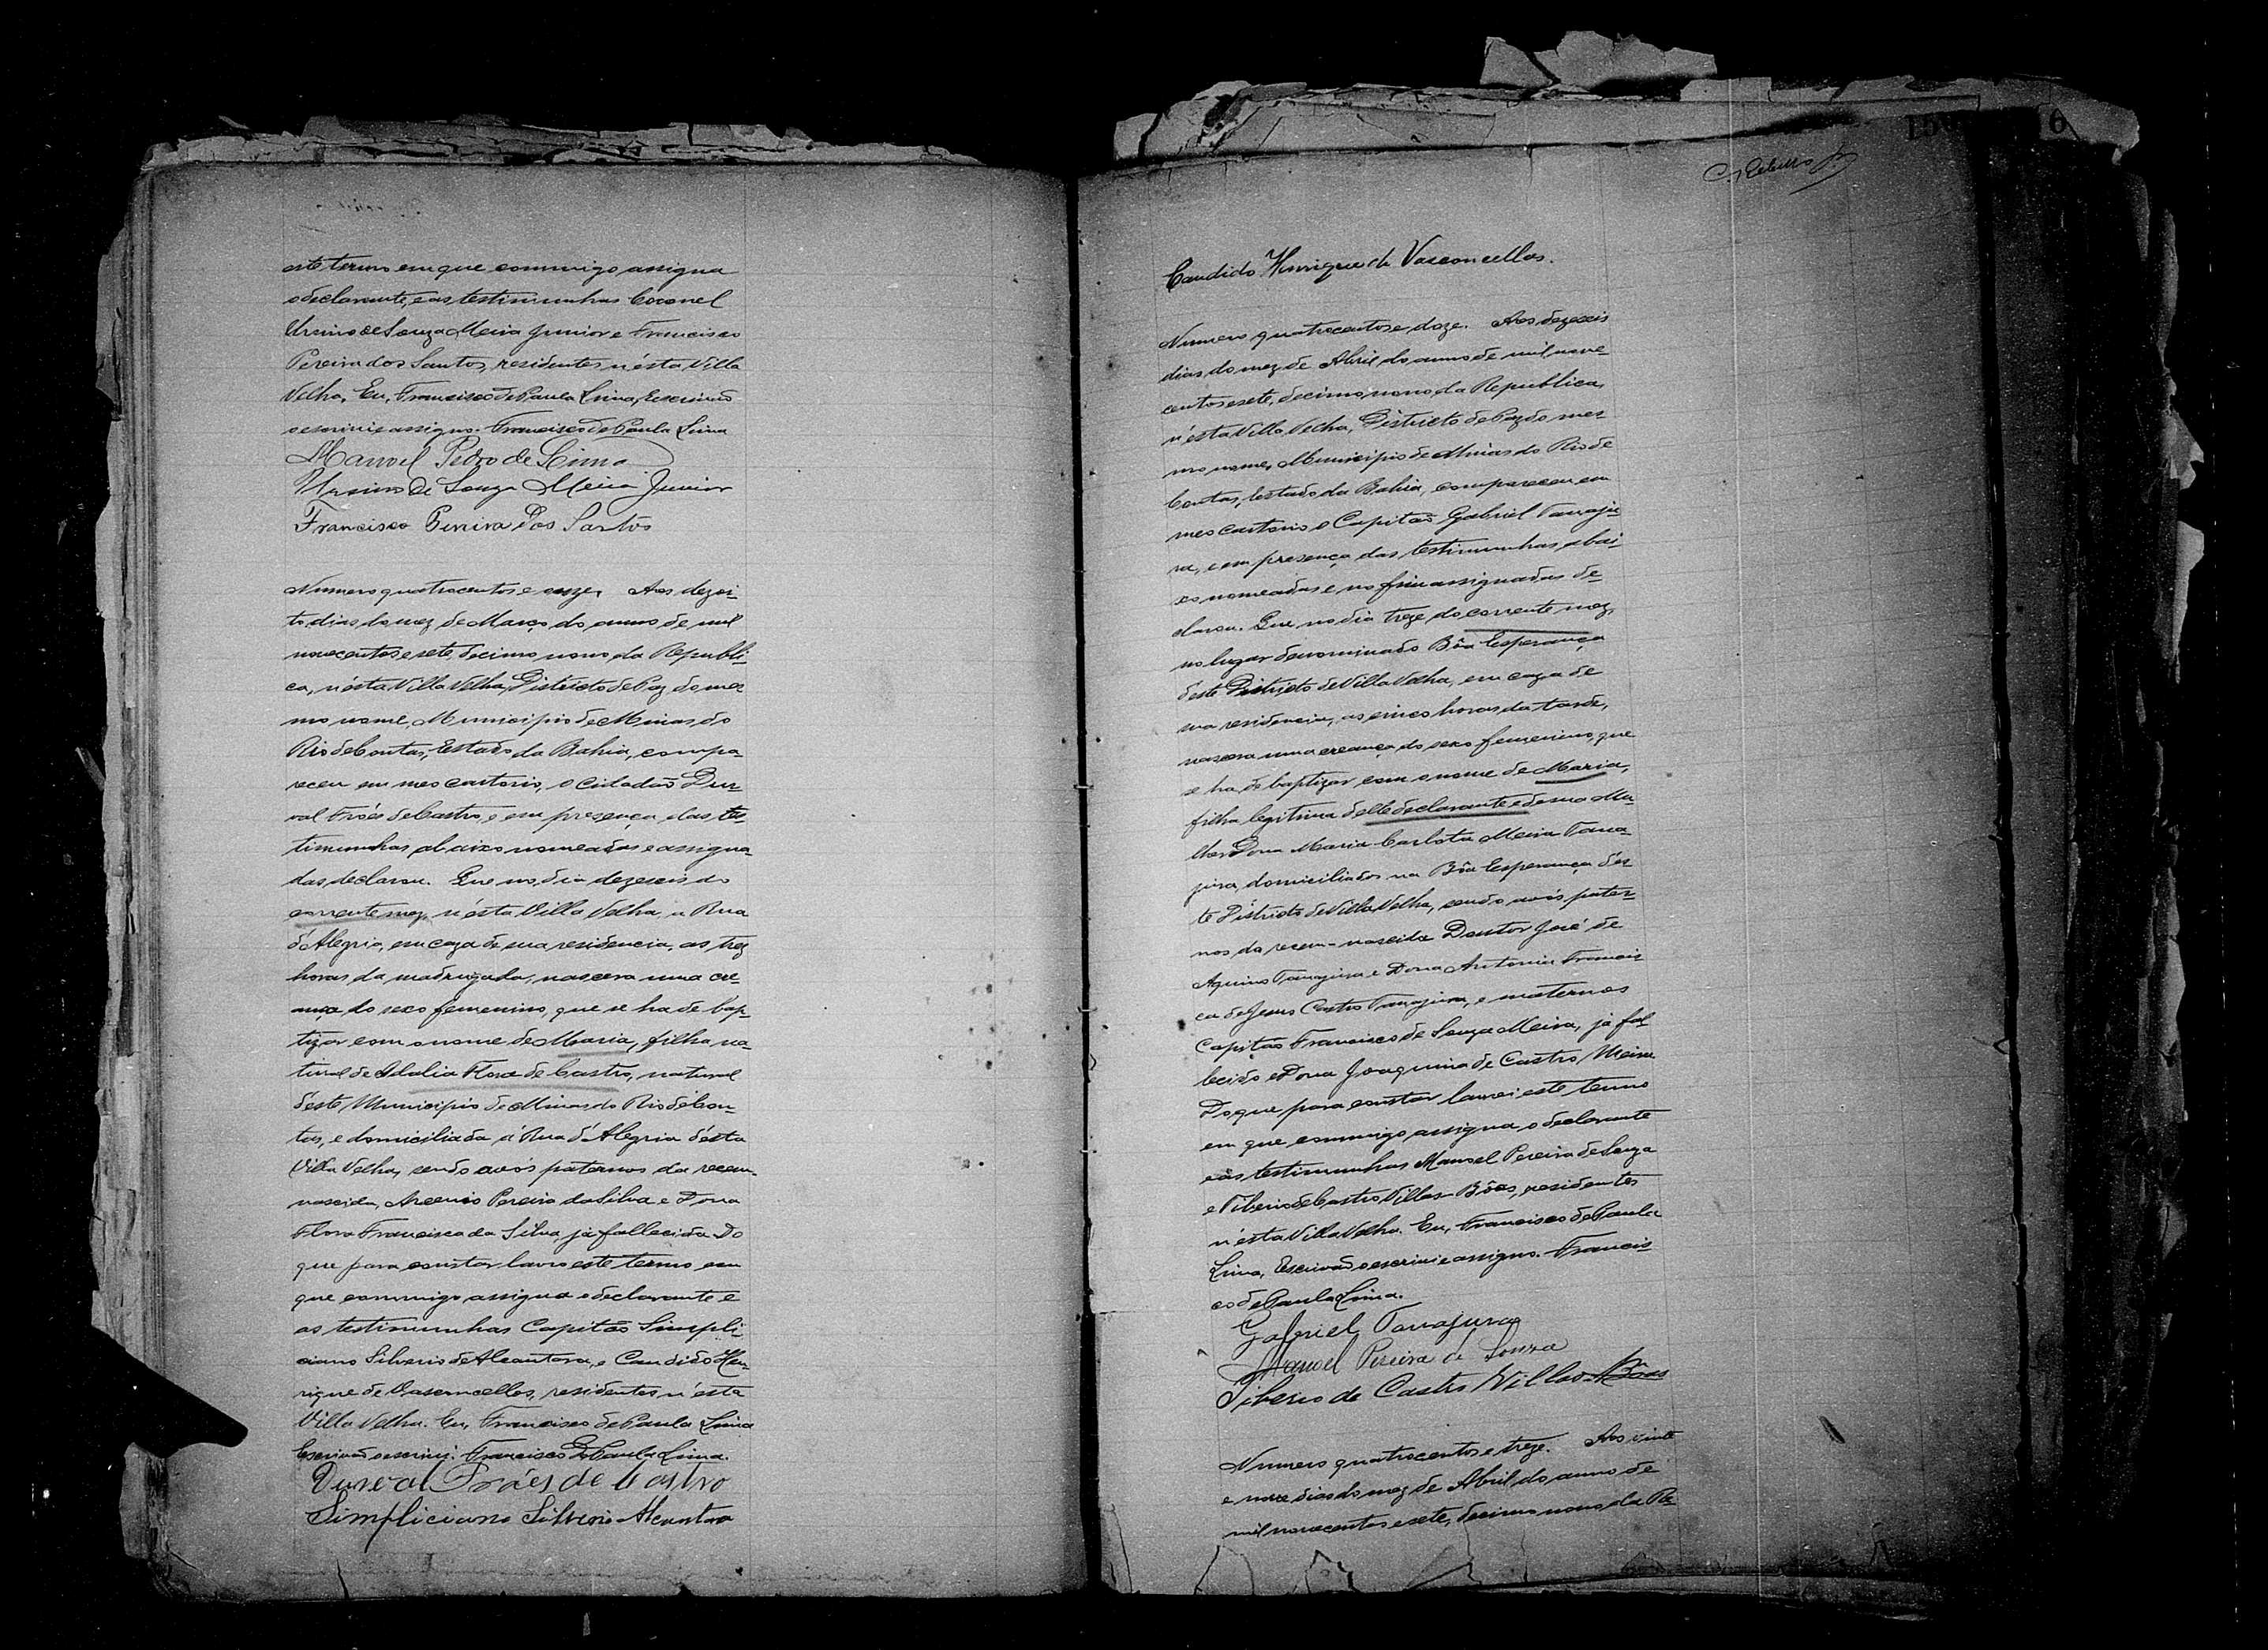 este termo em que commigo assigna
o declarante, e as testimunhas Coronel
Ursino de Souza Meira Junior e Francisco
Pereira dos Santos, residentes n'ésta Villa
Velha, Eu, Francisco de Paula Lima, Escrivão
o escrivi e assigno. Francisco de Paula Lima
Manoel Pedro de Lima
Ursino de Souza Meira Junior
Francisco Pereira dos Santos
Numero quatrocentos e onze. Aos dezoi-
to dias do mez de Março do anno de mil
novecentos e sete, decimo nono da Republi-
ca, n'ésta Villa Velha, Districto de Paz do mes-
mo nome, Municipio de Minas do
Rio de Contas, Estado da Bahia, compa-
receu em meo cartorio, o Cidadão Dur-
val Fróes de Castro, e em presença das tes-
timunhas abaixo nomeadas e assigna-
das declarou. Que no dia dezeseis do
corrente mez, n'ésta Villa Velha, a Rua
d'Alegria, em caza de sua residencia, as trez
horas da madrugada, nascera uma cre-
ança do sexo femenino, que se ha de bap-
tizar com o nome de Maria, filha na-
tural de Adalia Flora de Castro, natural
d'éste Municipio de Minas do Rio de Con-
tas, e domiciliada á Rua d'Alegria d'ésta
Villa Velha, sendo avós paternos da recem-
nascida, Arcenio Pereira da Silva e Dona
Flora Francisca da Silva, já fallecida. Do
que para constar lavro este termo em
que commigo assigna o declarante e
as testimunhas Capitão Simpli-
ciano Silverio de Alcantara, e Candido Hen-
rique de Vasconcellos, residentes n'ésta
Villa Velha. Eu, Francisco de Paula Lima
Escrivão o escrivi. Francisco de Paula Lima.
Durval Fróes de Castro
Simpliciano Silverio Alcantara
Candido Henrique de Vasconcellos.
Numero quatrocentos e doze. Aos dezeseis
dias do mez de Abril do anno de mil nove-
centos e sete, decimo nono da Republica,
n'ésta Villa Velha, Districto de Paz do mes-
mo nome, Municipio de Minas do Rio de
Contas, Estado da Bahia, compareceu em
meo cartorio o Capitão Gabriel Tanaju-
ra, e em presença das testimunhas abai-
xo nomeadas e no fim assignadas de-
clarou. Que no dia treze do corrente mez,
no lugar denominado Bôa Esperança
d'éste Districto de Villa Velha, em caza de
sua residencia, as cinco horas da tarde,
nascera uma creança do sexo femenino, que
se ha de baptizar com o nome de Maria,
filha legitima d'elle declarante e de sua Mu-
lher Dona Maria Carlota Meira Tana-
jura, domiciliados na Bôa Esperança d'és-
te Districto de Villa Velha, sendo avós pater-
nos da recem-nascida Doutor José de
Aquino Tanajura e Dona Antonia Francis-
ca de Jesus Castro Tanajura, e maternos
Capitão Francisco de Souza Meira, já fal-
lecido e Dona Joaquina de Castro Meira
Do que para constar lavrei este termo
em que commigo assigna o declarante
e as testimunhas Manoel Pereira de Souza
e Tiberio de Castro Villas-Bôas, residentes
n'ésta Villa Velha. Eu, Francisco de Paula
Lima, Escrivão o escrivi e assigno. Francis-
co de Paula Lima.
Gabriel Tanajura
Manoel Pereira de Souza
Tiberio de Castro Villas-Bôas
Numero quatrocentos e treze. Aos vinte
e nove dias do mez de Abril do anno de
mil novecentos e sete, decimo nono da Re-